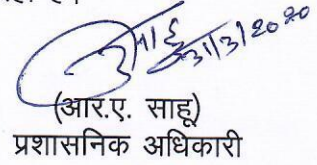 साहू
31/3/2020
(आर.ए. साहू)
प्रशासनिक अधिकारी